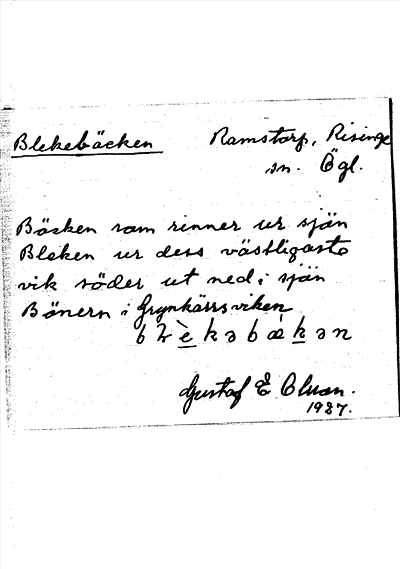 Blekebäcken
Ramstorp, Risinge
sn. Ögl.
Bäcken som rinner ur sjön
Bleken ur dess västligaste
vik söder ut ned i sjön
Bönern i Grynkärrsviken
Gustaf E
1927.